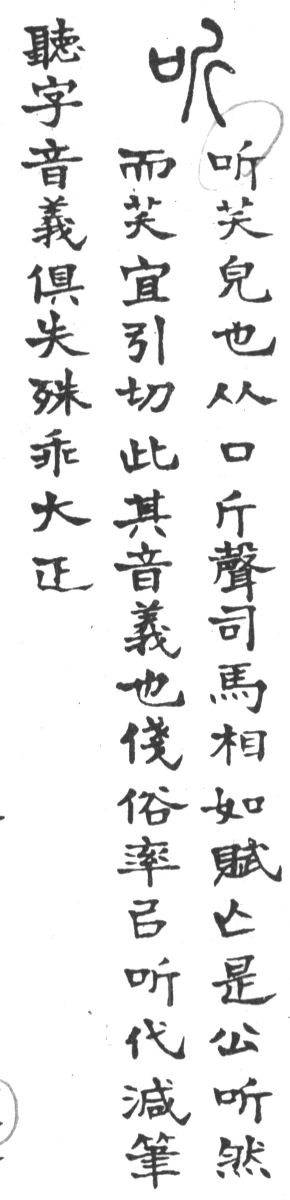 听
听笑皃也从口斤聲司馬相如賦亾是公听然
而笑宜引切此其音義也俴俗率㠯听代減筆
聽字音義俱失殊乖大正